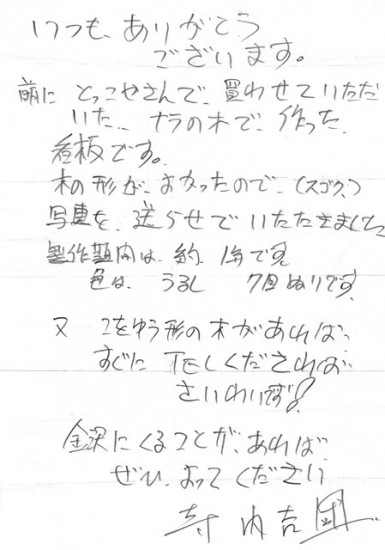 いつも、ありがとう
ございます。
前に とっこやさんで、買わせていただ
いた、ナラの木で、作った、
看板です。
木の形が、よかったので、(スゴク)
写真を、送らせていただきました
製作期間は、約、1年です。
色は、うるし 7回ぬりです。
又 こをゆう形の木があれば、
すぐに TELくだされば
さいわいです!
金沢にくることが、あれば
ぜひ、よってください
寺内吉